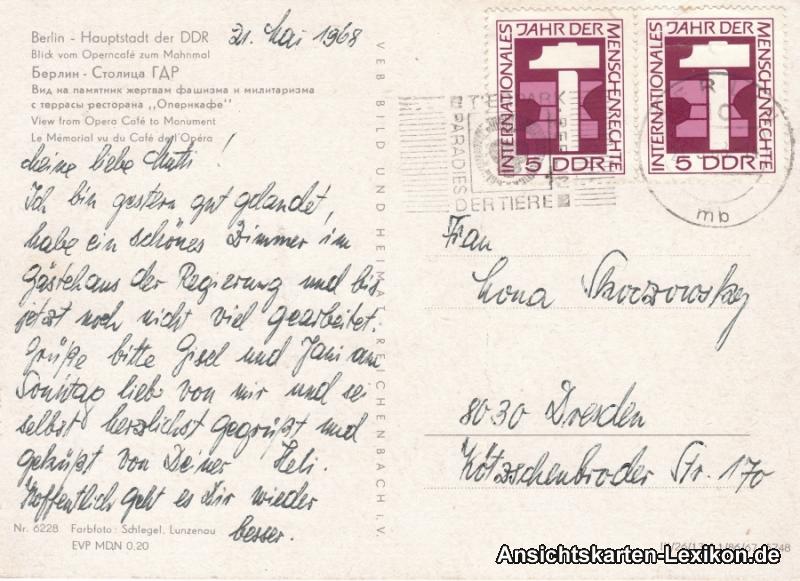 Berlin - Hauptstadt der DDR
Blick vom Operncafé zum Mahnmal
Берлин - Столица ГДР
Вид на памятник жертвам фашизма и милитаризма
с террасы ресторана „Оперникафе"
View from Opera Café to Monument
Le Mémorial vu du Café de l'Opéra
31. Mai 1968
Meine liebe Mutti!
Ich bin gestern gut gelandet,
habe ein schönes Zimmer im
Gästehaus der Regierung und bis
jetzt noch nicht viel gearbeitet.
Grüße bitte Gisel und Jani am
Sonntag lieb von mir und sei
selbst herzlichst gegrüßt und
geküßt von Deiner Heli.
Hoffentlich geht es Dir wieder
besser.
Nr. 6228 Farbfoto: Schlegel, Lunzenau
EVP MDN 0,20
VEB BILD UND HEIMAT REICHENBACH i. V.
INTERNATIONALES JAHR DER MENSCHENRECHTE
5 DDR
INTERNATIONALES JAHR DER MENSCHENRECHTE
5 DDR
TIERPARK
PARADIES
DER TIERE
mb
Frau
Lona Skorzowsky
8030 Dresden
Kötzschenbroder Str. 170
Ansichtskarten-Lexikon.de